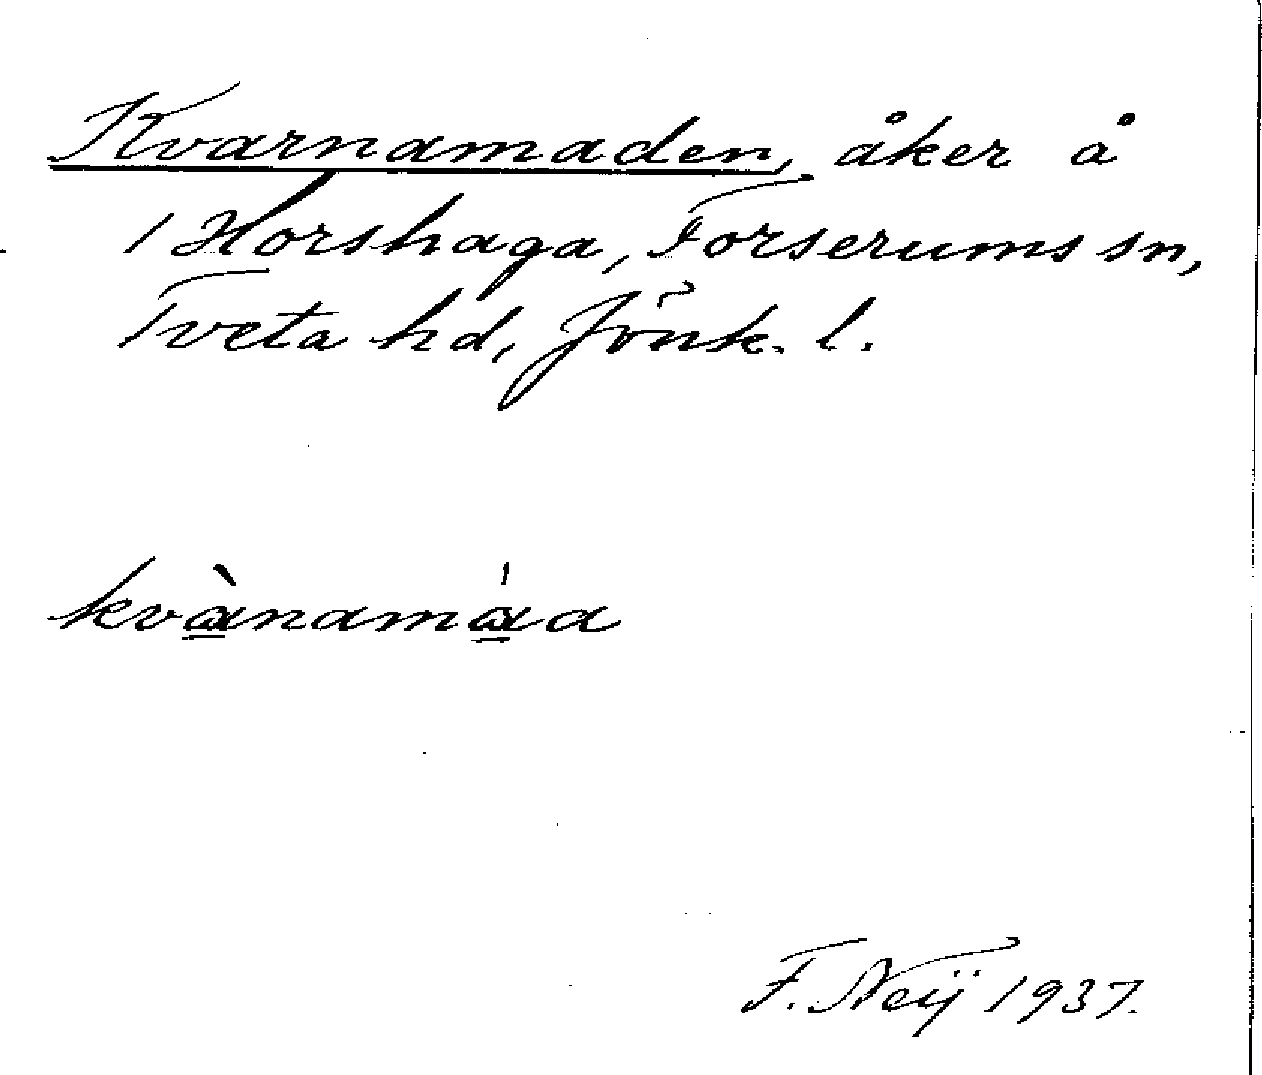 Kvarnamaden, åker å
1 Horshaga, Forserums sn,
Tveta hd, Jönk. l.
kvànamáa
F. Neij 1937.